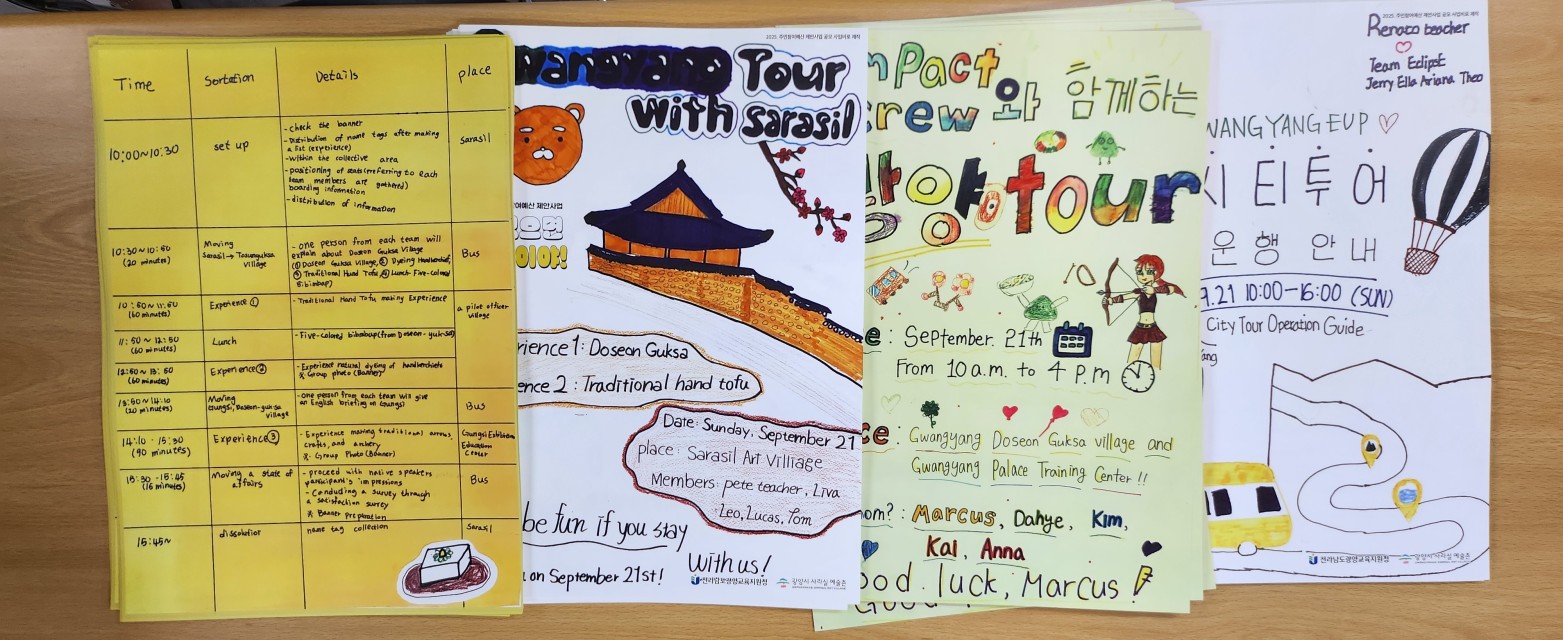 Time
Sortation
Details
place
10:00~10:30
set up
- check the banner
- Distribution of name tags after making
a list (experience)
- Within the collective area
- positioning of seats (referring to each
team members are gathered)
boarding information
- distribution of information
Sarasil
10:30~10:50
(20 minutes)
Moving
Sarasil →
Village
- one person from each team will
explain about Doseon Guksa Village
(① Doseon Guksa Village, ② Dyeing Handkerchief,
③ Traditional Hand Tofu, ④ Lunch Five-colored
Bibimbap)
Bus
10:50~11:50
(60 minutes)
Experience ①
- Traditional Hand Tofu making Experience
a pilot officer
village
11:50 ~ 12:50
(60 minutes)
Lunch
- Five-colored bibimbap (from Doseon-guksa)
12:50 ~ 13:50
(60 minutes)
Experience ②
- Experience natural dyeing of handkerchiefs
※ Group photo (Banner)
13:50~14:10
(20 minutes)
Moving
Gungsi, Doseon-guksa
village
- one person from each team will give
an English briefing on Gungsi
Bus
14:10 - 15:30
(90 minutes)
Experience ③
- Experience making traditional arrows,
crafts, and archery
※ Group Photo (Banner)
Gungsi Exhibition
Education
Center
15:30 -15:45
(15 minutes)
Moving a state of
affairs
- proceed with native speakers
participant's impressions
- Conducting a survey through
a satisfaction survey
※ Banner preparation
Bus
15:45~
dissolution
name tag collection
Sarasil
2025 주민참여예산 제안사업 공모 사업비로 제작
wangyang Tour
with sarasil
여예산 제안사업
이야!
rience 1: Doseon Guksa
ence 2 : Traditional hand tofu
Date: Sunday, September 21
place: Sarasil Art Villiage
Members: pete teacher, Liva
Leo, Lucas, Tom
be fun if you stay
with us!
on September 21st!
전라남도광양교육지원청
광양시 사라실 예술촌
2025 주민참여예산 제안사업 공모 사업비로 제작
mpact
crew와 함께하는
양 tour
e : September. 21th
From 10 a.m. to 4 P.m
ce : Gwangyang Doseon Guksa village and
Gwangyang Palace Training Center !!
om? : Marcus, Dahye, Kim,
Kai, Anna
ood luck, Marcus!
Good
2025 주민참여예산 제안사업 공모 사업비로 제작
Renato teacher
Team Eclipse
Jerry Ella Ariana Theo
WANGYANGEUP
시 티 투 어
운 행 안 내
9.21 10:00-16:00 (SUN)
City Tour Operation Guide
yang
전라남도광양교육지원청
광양시 사라실 예술촌